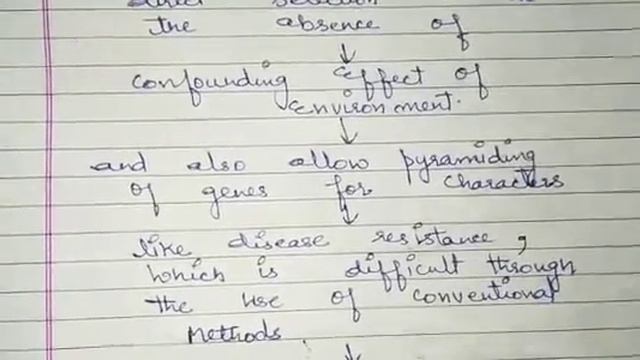 the absence of
↓
confounding effect of
environment.
↓
and also allow pyramiding
of genes for characters
↓
like disease resistance,
which is difficult through
the use of conventional
methods.
↓